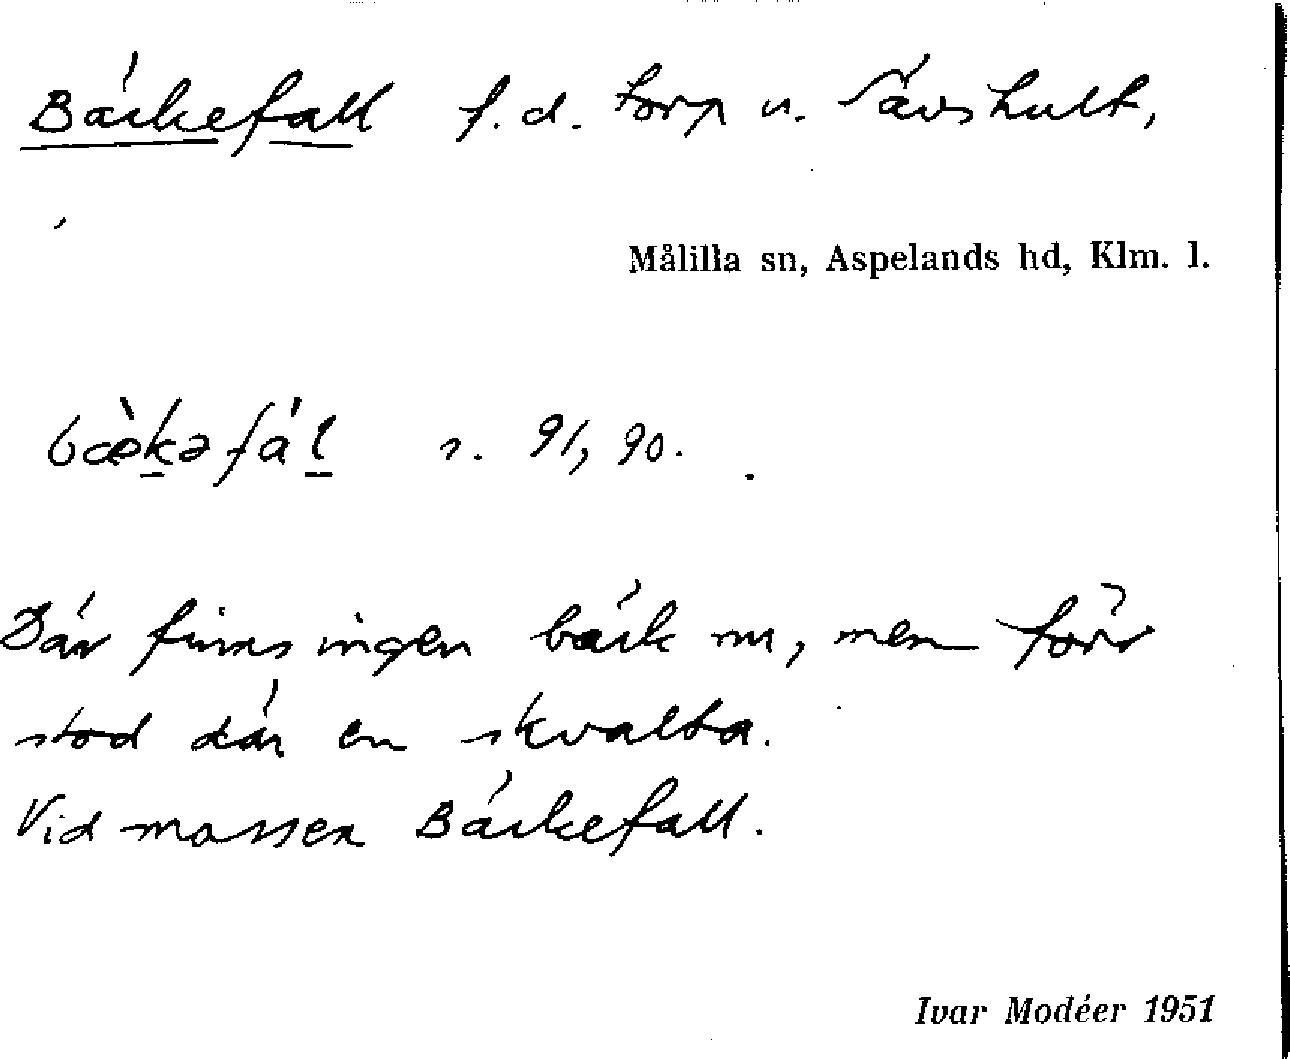 Bäckefall f.d. torp u. Sävshult,
Målilla sn, Aspelands hd, Klm. l.
bæ̀k̠əfál̠ s. 91, 90.
Där finns ingen bäck nu, men förr
stod där en skvalta.
Vid mossen Bäckefall.
Ivar Modéer 1951